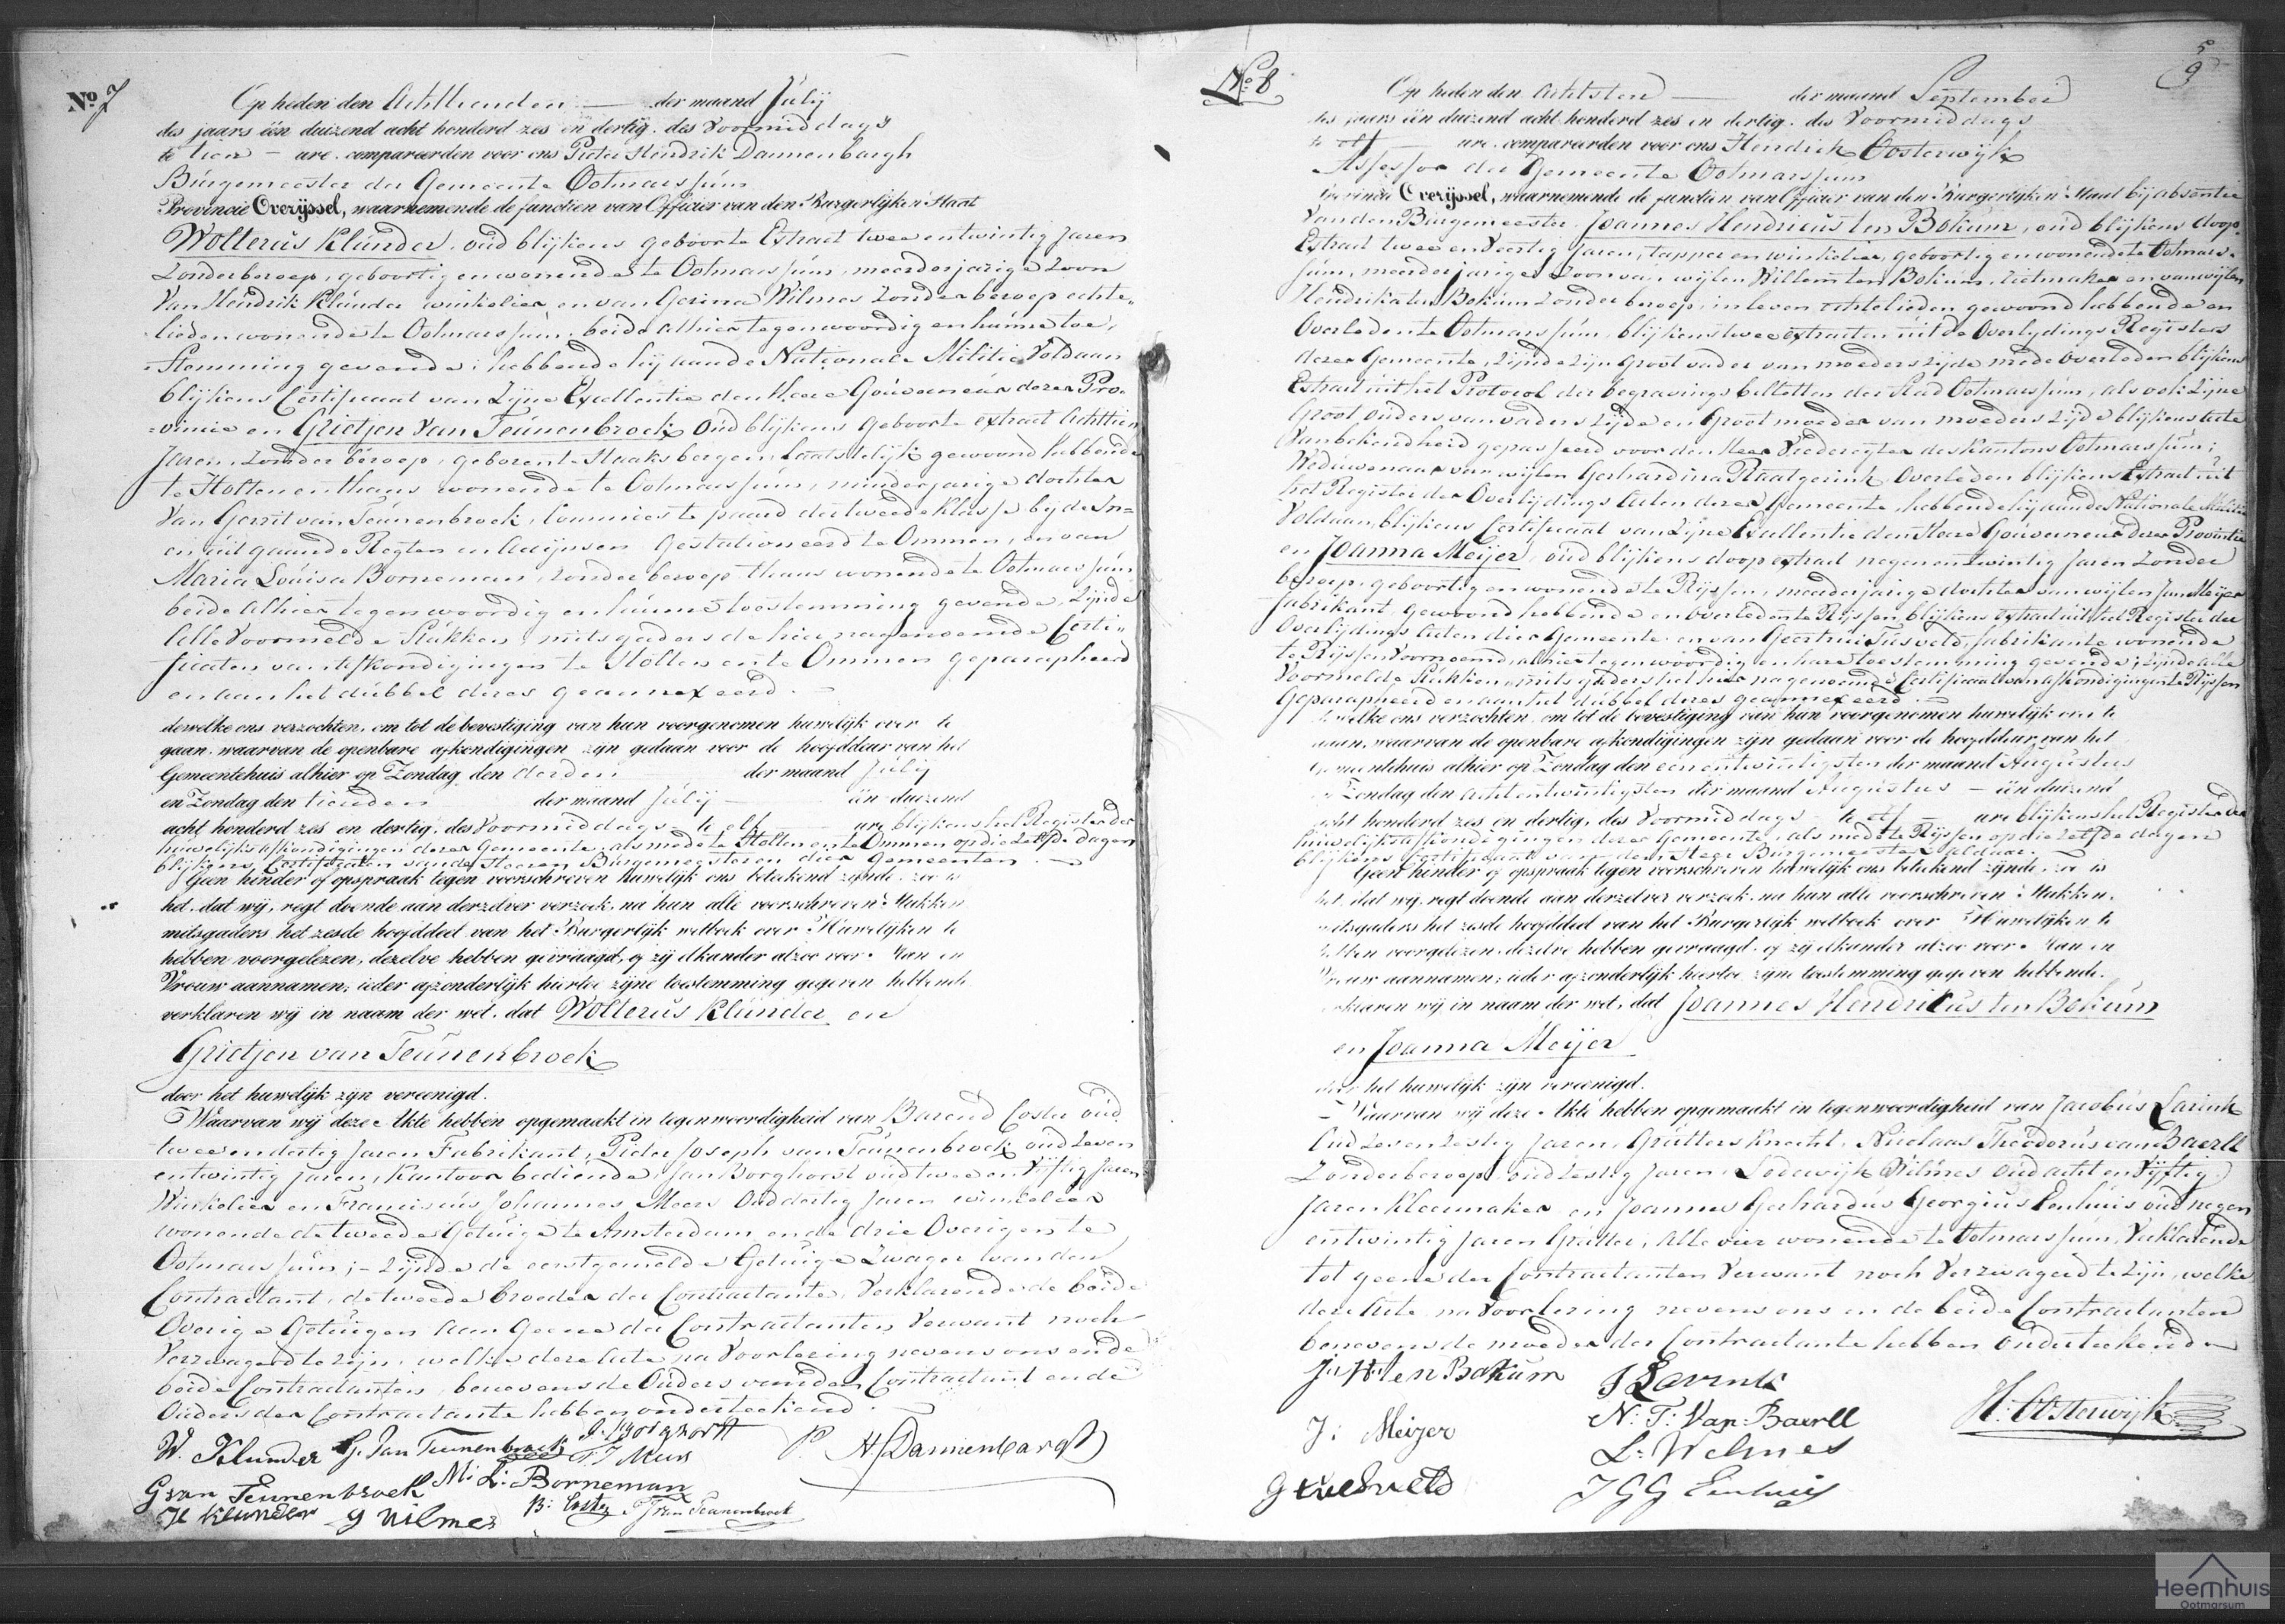 No. 7
Op heden den Achttienden der maand Julij
des jaars één duizend acht honderd zes en dertig, des Voormiddags
te tien ure, compareerden voor ons Pieter Hendrik Dannenbargh
Burgemeester der Gemeente Ootmarssum
Provincie Overijssel, waarnemende de functien van Officier van den Burgerlijken Staat
Wolterus Klunder, oud blijkens geboorte Extract twee entwintig Jaren
Zonder beroep, geboortig en wonende te Ootmarssum, meerderjarige Zoon
Van Hendrik Klunder winkelier en van Gerina Wilmes Zonder beroep echte-
lieden wonende te Ootmarssum, beide alhier tegenwoordig en hunne toe-
Stemming gevende; hebbende hij aan de Nationale Militie Voldaan
blijkens Certificaat van Zijne Excellentie den Heere Gouverneur dezer Pro-
vincie en Grietjen Van Teunenbroek, Oud blijkens geboorte extract Achttien
Jaren, Zonder beroep, geboren te Haaksbergen, laatstelijk gewoond hebbende
te Holten en thans wonende te Ootmarssum, minderjarige dochter
Van Gerrit van Teunenbroek, Commies te paard der tweede klasse bij de In-
en uitgaande Regten en Accijnsen Gestationeerd te Ommen, en van
Maria Louisa Borneman, zonder beroep thans wonende te Ootmarssum
beide Alhier tegenwoordig en hunne toestemming gevende, Zijnde
Alle Voormelde Stukken, mitsgaders de hier nagenoemde Certi-
ficaten van Afkondigingen te Holten en te Ommen geparapheerd
en aan het dubbel dezes geannexeerd.
dewelke ons verzochten, om tot de bevestiging van hun voorgenomen huwelijk over te
gaan, waarvan de openbare afkondigingen zijn gedaan voor de hoofddeur van het
Gemeentehuis alhier op Zondag den derden der maand Julij
en Zondag den tienden der maand Julij één duizend
acht honderd zes en dertig, des Voormiddags te elf ure blijkens het Register der
huwelijks Afkondigingen dezer Gemeente, als mede te Holten en te Ommen op die zelfde dagen
blijkens Certificaten van de Heeren Burgemeesteren dier Gemeenten.
Geen hinder of opspraak tegen voorschreven huwelijk ons betekend zijnde, zoo is
het, dat wij, regt doende aan derzelver verzoek, na hun alle voorschreven Stukken
mitsgaders het zesde hoofddeel van het Burgerlijk wetboek over Huwelijken te
hebben voorgelezen, dezelve hebben gevraagd, of zij elkander alzoo voor Man en
Vrouw aannamen; ieder afzonderlijk hiertoe zijne toestemming gegeven hebbende
verklaren wij in naam der wet, dat Wolterus Klunder en
Grietjen van Teunenbroek
door het huwelijk zijn vereenigd.
Waarvan wij deze Akte hebben opgemaakt in tegenwoordigheid van Barend Coster oud
twee en dertig Jaren Fabrikant, Pieter Joseph van Teunenbroek oud zeven
entwintig Jaren, Kantoor bediende, Jan Borghorst oud twee en Vijftig Jaren
Winkelier en Franciscus Johannes Meers Oud dertig Jaren winkelier
wonende de tweede Getuige te Amsterdam en de drie Overigen te
Ootmarssum; Zijnde de eerstgemelde Getuige Zwager van den
Contractant, de tweede broeder der Contractante, Verklarende de beide
Overige Getuigen Aan Geene der Contractanten Verwant noch
Verzwagerd te zijn, welke deze Acte na Voorlezing nevens ons en de
beide Contractanten, benevens de Ouders van den Contractant en de
Ouders der Contractante hebben onderteekend.
W. Klunder G. van Teunenbroek J. Borghorst P. H. Dannenbargh
F. J. Meers
G van Teunenbroek M: L: Borneman
H Klunder G Wilmes B: Coster P J van Teunenbroek
No. 8
5
9
Op heden den Achtsten der maand September
des jaars één duizend acht honderd zes en dertig, des Voormiddags
te elf ure, compareerden voor ons Hendrik Oosterwijk
Assessor der Gemeente Ootmarssum
Provincie Overijssel, waarnemende de functien van Officier van den Burgerlijken Staat bij absentie
Van den Burgemeester, Joannes Hendricus ten Bokum, oud blijkens doop
Extract twee en Veertig Jaren, tapper en winkelier, geboortig en wonende te Ootmars-
sum, meerderjarige Zoon van wijlen Willem ten Bokum, rietmaker en van wijlen
Hendrika ten Bokum Zonder beroep, in leven echtelieden gewoond hebbende en
Overleden te Ootmarssum, blijkens twee extracten uit de Overlijdings Registers
dezer Gemeente, Zijnde zijn Groot vader van moeders zijde mede overleden blijkens
Extract uit het Protocol der begravings billetten der Stad Ootmarssum, als ook Zijne
Groot Ouders van vaders Zijde en Groot moeder van moeders zijde blijkens Acte
Van bekendheid gepasseerd voor den Heer Vrederegter des Kantons Ootmarssum;
Weduwenaar van wijlen Gerhardina Raatgerink, Overleden blijkens Extract uit
het Register der Overlijdings Acten dezer Gemeente, hebbende hij aan de Nationale Militie
Voldaan, blijkens Certificaat van Zijne Excellentie den Heere Gouverneur dezer Provintie
en Joanna Meijer, oud blijkens doop extract negen entwintig Jaren Zonder
beroep, geboortig en wonende te Rijssen, meerderjarige dochter van wijlen Jan Meijer
fabrikant, gewoond hebbende en overleden te Rijssen blijkens extract uit het Register der
Overlijdings Acten dier Gemeente, en van Geertrui Tusveld, fabrikante wonende
te Rijssen Voornoemd, alhier tegenwoordig en hare toestemming gevende; Zijnde alle
Voormelde Stukken, mitsgaders het hier nagenoemde Certificaat van afkondigingen te Rijssen
Geparapheerd en aan het dubbel dezes geannexeerd.
dewelke ons verzochten, om tot de bevestiging van hun voorgenomen huwelijk over te
gaan, waarvan de openbare afkondigingen zijn gedaan voor de hoofddeur van het
Gemeentehuis alhier op Zondag den een entwintigsten der maand Augustus
en Zondag den Acht entwintigsten der maand Augustus één duizend
acht honderd zes en dertig, des Voormiddags te elf ure blijkens het Register der
huwelijks Afkondigingen dezer Gemeente, als mede te Rijssen op die zelfde dagen
blijkens Certificaat van den Heer Burgemeester aldaar.
Geen hinder of opspraak tegen voorschreven huwelijk ons betekend zijnde, zoo is
het, dat wij, regt doende aan derzelver verzoek, na hun alle voorschreven Stukken,
mitsgaders het zesde hoofddeel van het Burgerlijk wetboek over Huwelijken te
hebben voorgelezen, dezelve hebben gevraagd, of zij elkander alzoo voor Man en
Vrouw aannamen; ieder afzonderlijk hiertoe zijne toestemming gegeven hebbende,
verklaren wij in naam der wet, dat Joannes Hendricus ten Bokum
en Joanna Meijer
door het huwelijk zijn vereenigd.
Waarvan wij deze Akte hebben opgemaakt in tegenwoordigheid van Jacobus Larink
Oud Zeven Zestig Jaren, Grutters knecht, Nicolaas Theodorus van Baerll
Zonder beroep, oud Zestig Jaren, Lodewijk Wilmes Oud acht en Vijftig
Jaren Kleermaker en Joannes Gerhardus Georgius Eenhuis oud negen
entwintig Jaren Grutter, Alle vier wonende te Ootmarssum, Verklarende
tot geene der Contractanten Verwant noch Verzwagerd te zijn, welke
deze Acte na Voorlezing nevens ons en de beide Contractanten
benevens de moeder der Contractante hebben Onderteekend
J. H. ten Bokum J Larink
J: Meijer N: T: Van Baerll H: Oosterwijk
L: Welmes
G tusveld J G G Eenhuis
Heemhuis
Ootmarsum